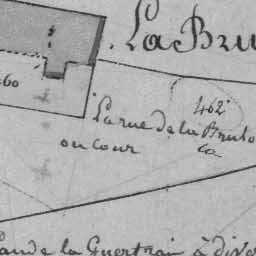 La Bru
60
462
La rue de la Brulo
ou cour
Lande la Guertrais à diver